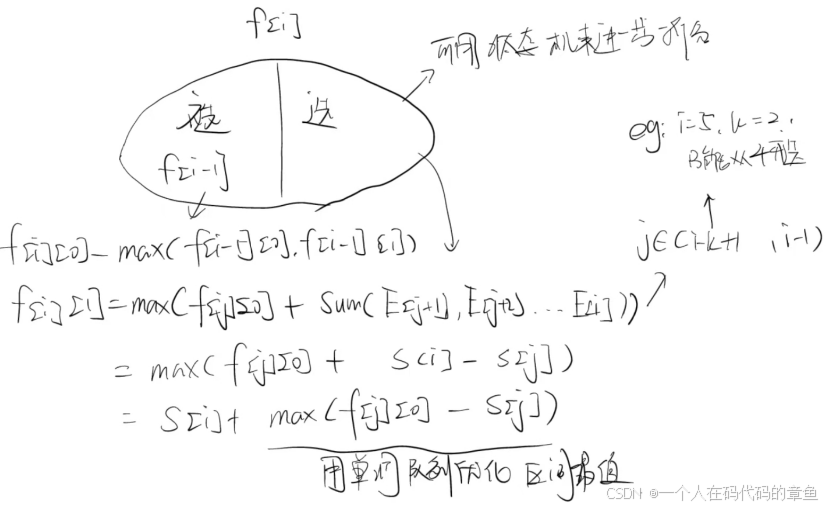 f[i]
可用状态机来进一步划分
不选 选
f[i-1]
eg: i=5, k=2,
只能从4开选
f[i][0]=max(f[i-1][0], f[i-1][1])
j∈(i-k+1, i-1)
f[i][1]=max(f[j][0] + Sum(E[j+1], E[j+2] ... E[i]))
= max(f[j][0] + S[i] - S[j])
= S[i] + max(f[j][0] - S[j])
用单调队列优化区间最值
CSDN @一个人在码代码的章鱼